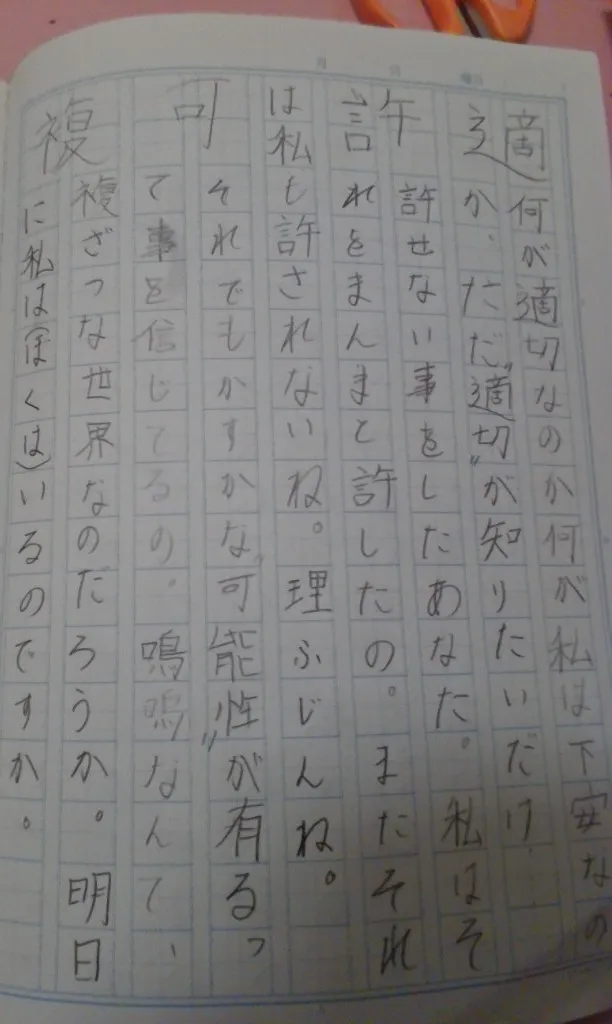 月 日 曜日
適
何が適切なのか何が私は下安なの
か、ただ"適切"が知りたいだけ
許
許せない事をしたあなた。私はそ
れをまんまと許したの。またそれ
は私も許されないね。理ふじんね。
可
それでもかすかな"可能性"が有る。っ
て事を信じてるの。鳴鳴なんて、
複
複ざつな世界なのだろうか。明日
に私は(ぼくは)いるのですか。